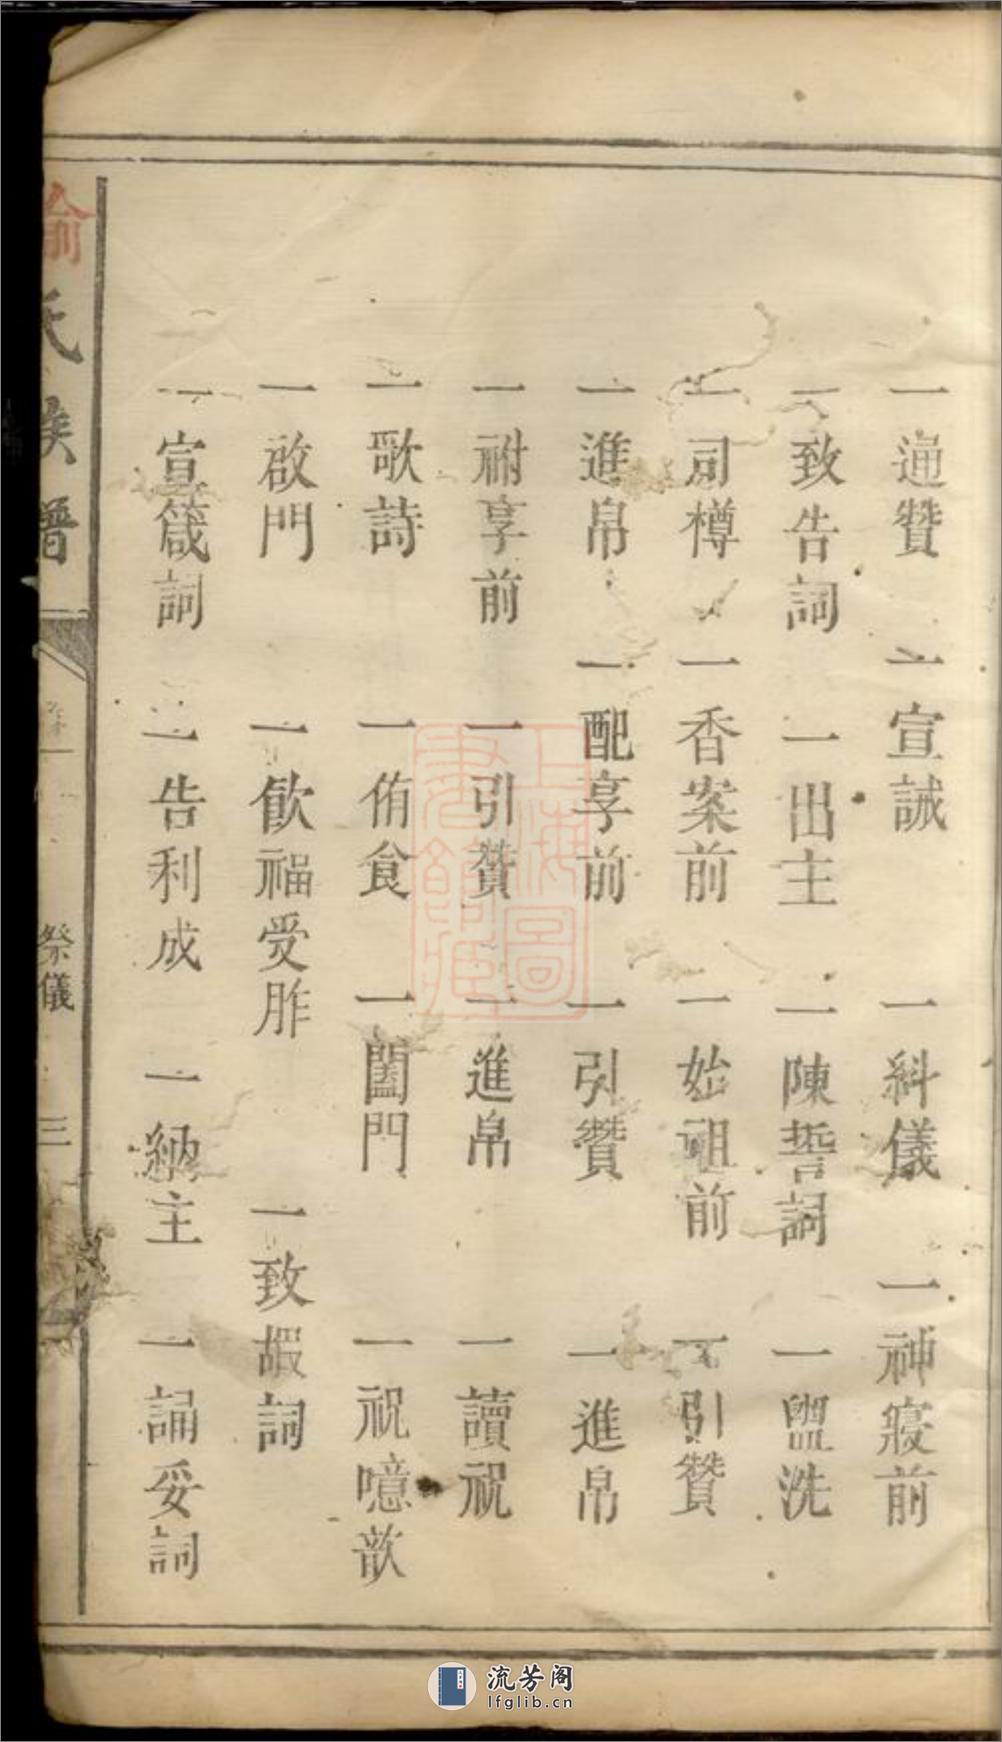 一通贊 一宣誡 一糾儀 一神寢前
一致告詞 一出主 一陳誓詞 一盥洗
一司樽 一香案前 一始祖前 一引贊
一進帛 一配享前 一引贊 一進帛
一祔享前 一引贊 一進帛 一讀祝
一歌詩 一侑食 一闔門 一祝噫歆
一啟門 一飲福受胙 一致嘏詞
一宣箴詞 一告利成 一納主 一誦妥詞
俞氏族譜 祭儀 三
上海圖書館藏
流芳阁
lfglib.cn